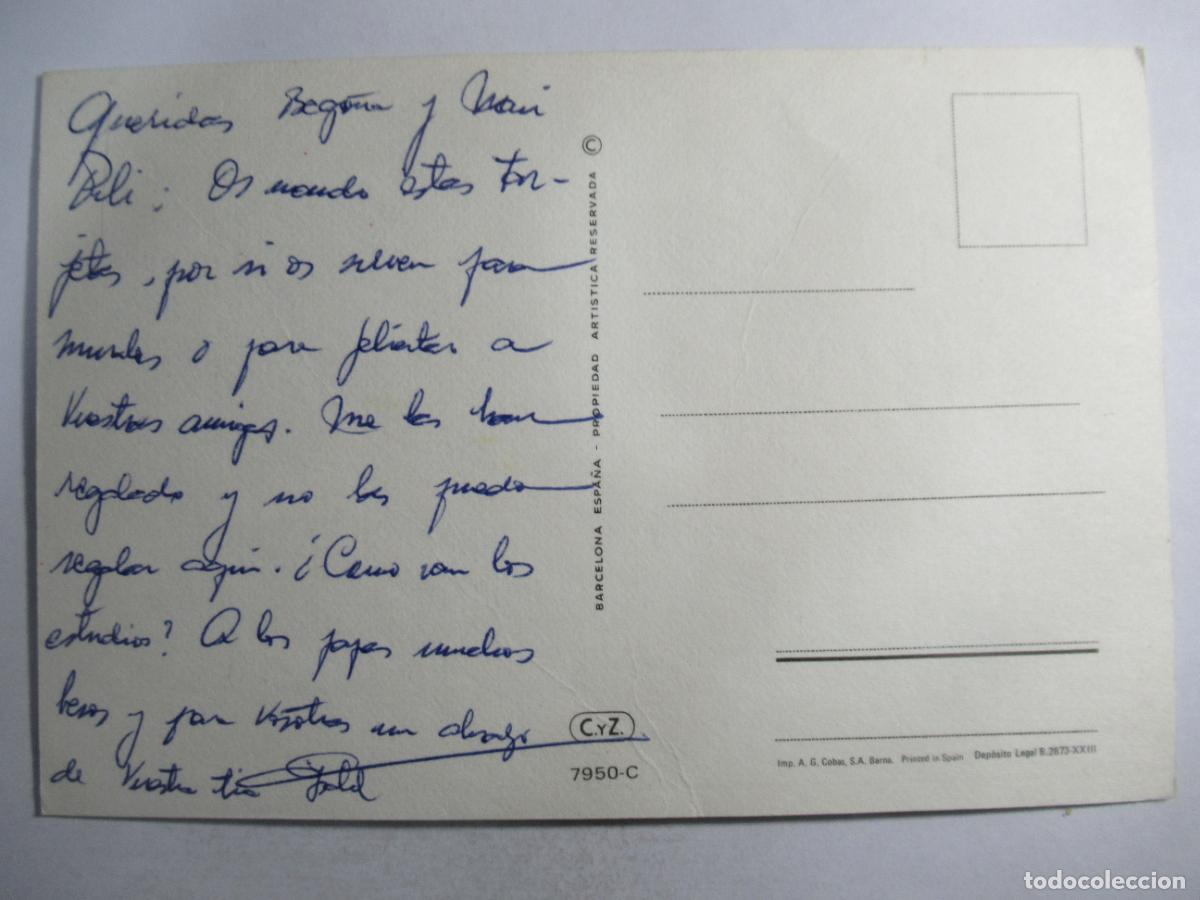 Queridas Begoña y Mari
Pili: Os mando estas tar-
jetas, por si os sirven para
mandar o para felicitar a
vuestras amigas. Me las han
regalado y no las puedo
regalar aquí. ¿Como van los
estudios? A los papas muchos
besos y para vosotras un abrazo
de vuestra tia
BARCELONA ESPAÑA - PROPIEDAD ARTISTICA RESERVADA ©
C.YZ.
7950-C
Imp. A. G. Cobas, S.A. Barna. Printed in Spain Depósito Legal B.2873-XXIII
todocoleccion